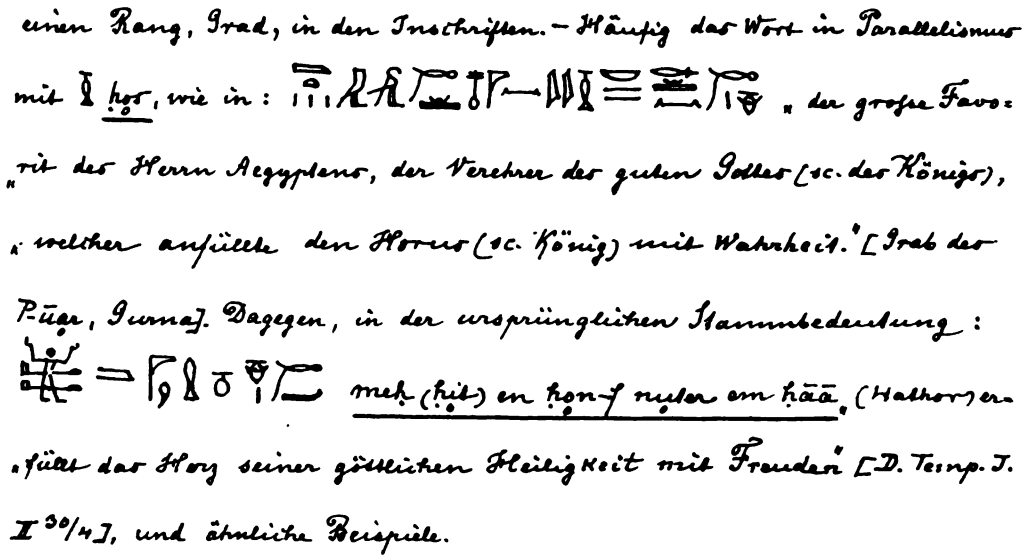 einen Rang, Grad, in den Inschriften. – Häufig das Wort in Parallelismus
mit ḥos, wie in: „der große Favo=
„rit des Herrn Aegyptens, der Verehrer des guten Gottes (sc. des Königs),
„welcher anfüllte den Horus (sc. König) mit Wahrheit." [Grab des
P-ūạr, Gurna]. Dagegen, in der ursprünglichen Stammbedeutung:
meḥ (ḥit) en ḥon-f nuter em ḥāā „(Hathor) er-
„füllt das Herz seiner göttlichen Heiligkeit mit Freuden" [D. Temp. I.
II 30/4], und ähnliche Beispiele.